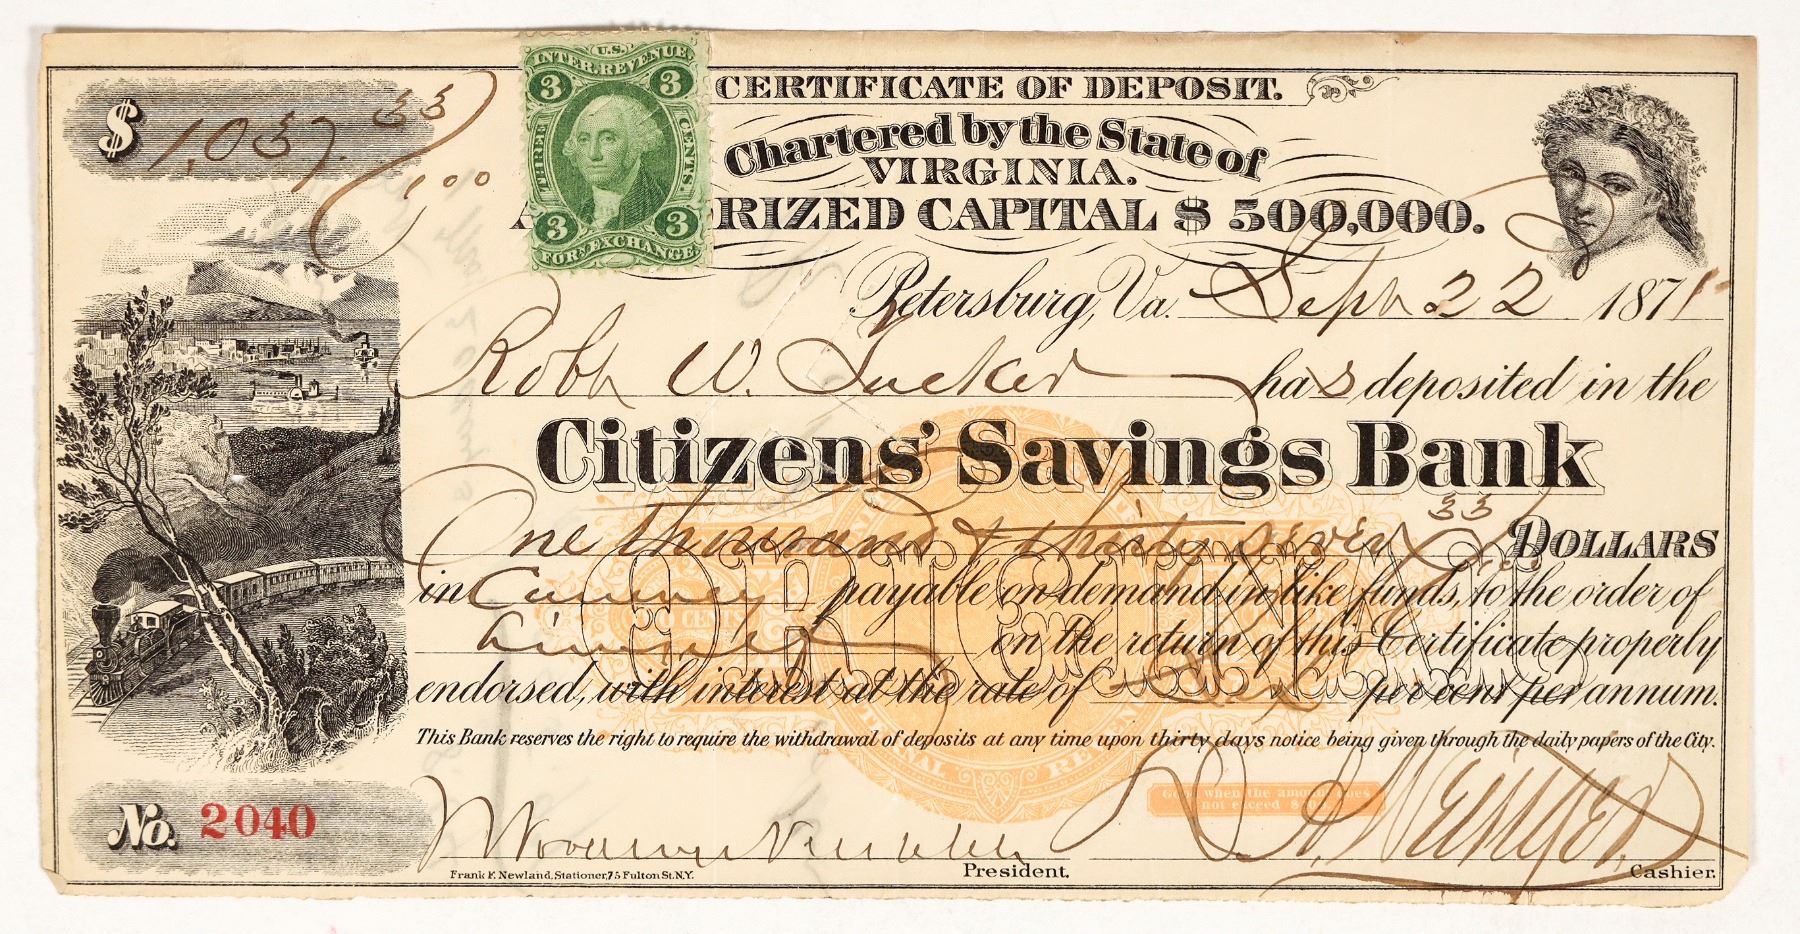 $ 1,037. 33/100
U.S.
INTER. REVENUE
3 3
THREE CENTS.
3 3
FOR EXCHANGE
CERTIFICATE OF DEPOSIT.
Chartered by the State of
VIRGINIA.
A RIZED CAPITAL $ 500,000.
Petersburg, Va. Sept 22 1871
W. Tucker has deposited in the
Citizens' Savings Bank
One thousand & thirty seven 33 DOLLARS
ORIGINAL
in Currency payable on demand in like funds, to the order of
himself on the return of this Certificate properly
endorsed, with interest at the rate of Six per cent per annum.
This Bank reserves the right to require the withdrawal of deposits at any time upon thirty days notice being given through the daily papers of the City.
Good when the amount does
not exceed $
No. 2040
President.
Cashier.
Frank F. Newland, Stationer, 75 Fulton St. N.Y.